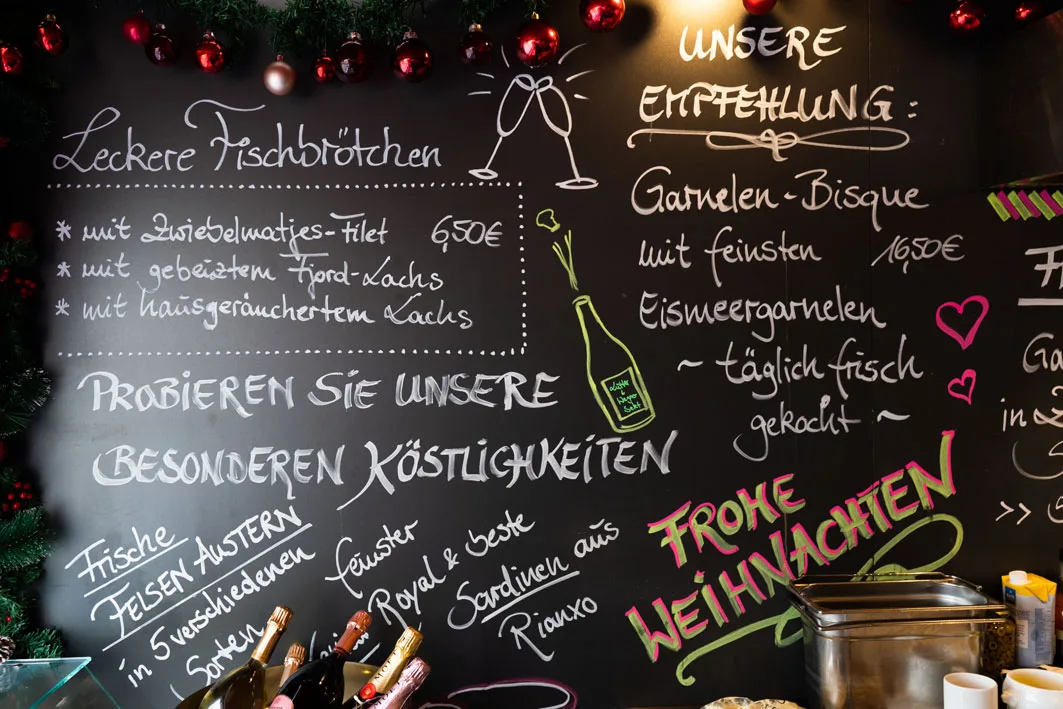 Leckere Fischbrötchen
* mit Zwiebelmatjes-Filet 6,50€
* mit gebeiztem Fjord-Lachs
* mit hausgeräuchertem Lachs
PROBIEREN SIE UNSERE
BESONDEREN KÖSTLICHKEITEN
Frische
FELSEN AUSTERN
in 5 verschiedenen
Sorten
feinster
Royal &
beste
Sardinen aus
Rianxo
UNSERE
EMPFEHLUNG:
Garnelen-Bisque
mit feinsten 16,50€
Eismeergarnelen
~ täglich frisch
gekocht ~
FROHE
WEIHNACHTEN
F
Ga
in
>>